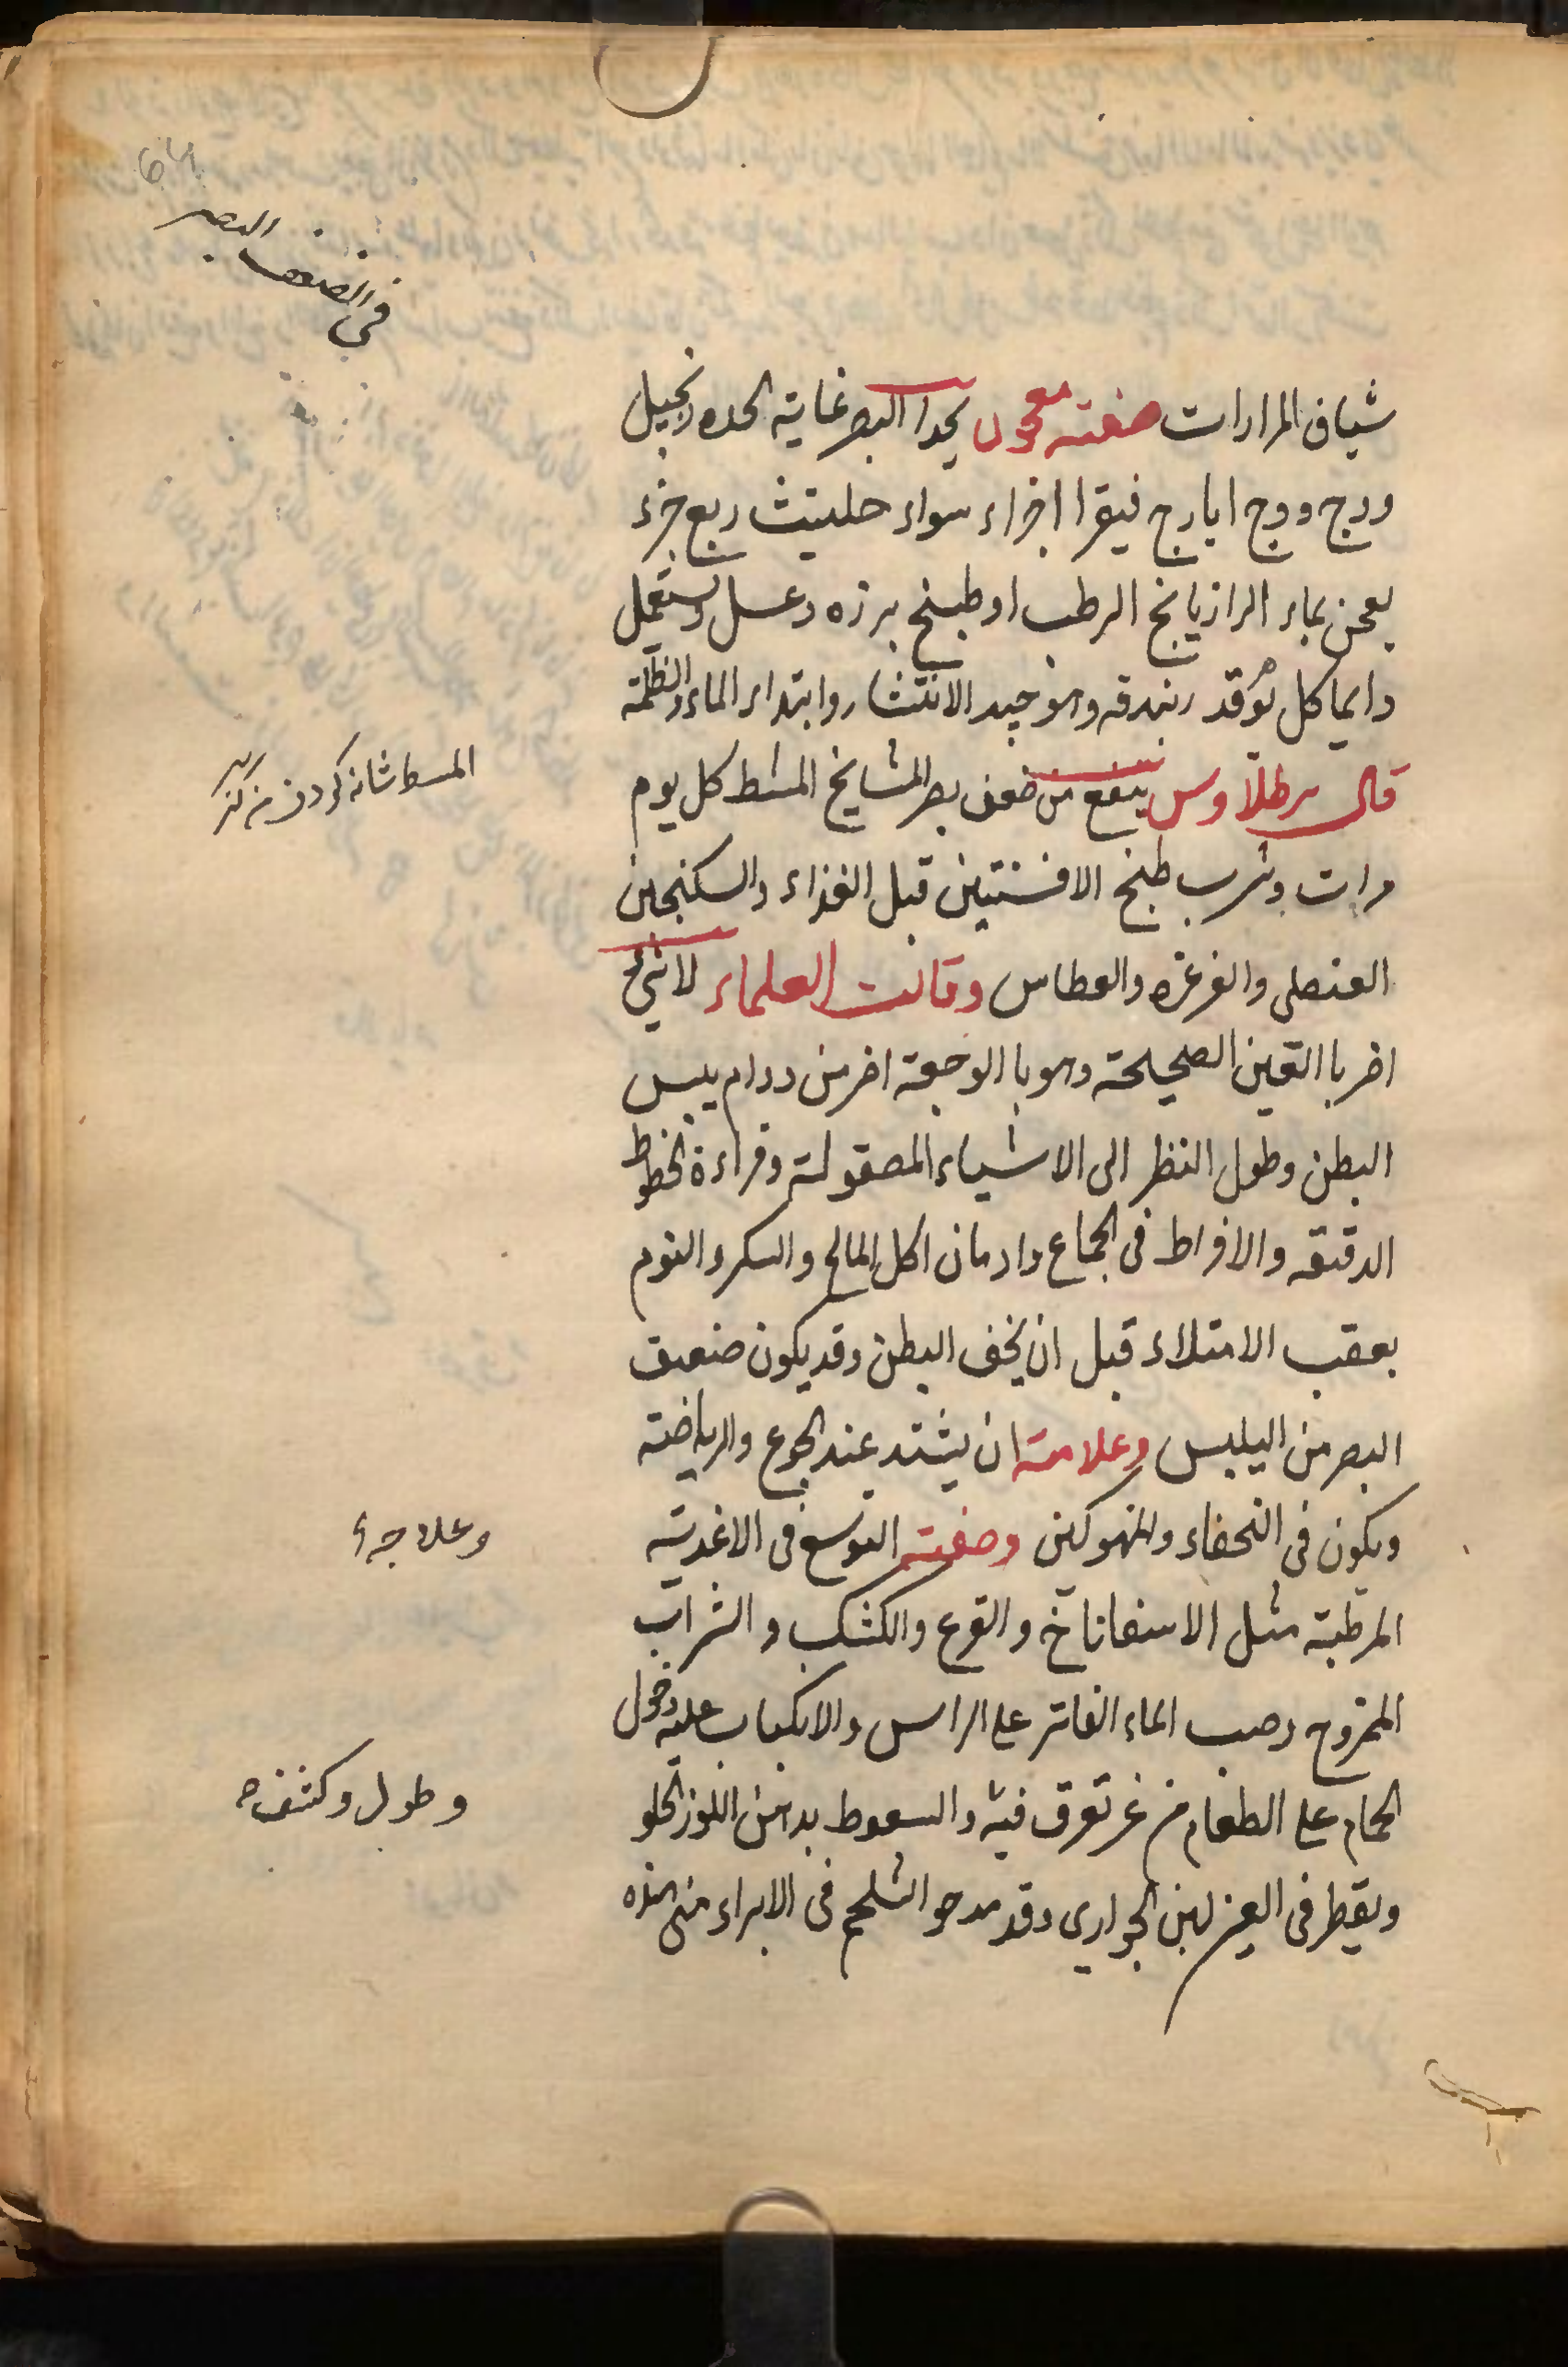 في الضعف البصر
شياف المرارات صفته معجون يحدا البصر غاية الحده زنجبيل
ووج ووج ايارج فيقرا اجزاء سواء حلتيث ربع جزء
يعجن بماء الرازيانج الرطب او طبيخ برزه وعسل ويستعمل
دايما كل يوم قد ربندقه وهو جيد الانتشار وابتداء الماء والظلمة
قال برطلاوس ينفع من ضعف بصر المشايخ المشط كل يوم
المسط شانه كردن
مرات وشرب طبخ الافسنتين قبل الغذاء والسكنجبين
العنصلى والغرغره والعطاس وقالت العلماء لا شئ
اضر با العين الصحيحة وهو با الوجعة اضر من دوام يبس
البطن وطول النظر الى الاشياء المصقولة وقراءة الخطوط
الدقيقه والافراط فى الجماع وادمان اكل المالح والسكر والنوم
بعقب الامتلاء قبل ان يخف البطن وقد يكون ضعيف
البصر من اليلبس وعلامته ان يشتد عند الجوع والرياضته
ويكون فى النحفاء والمنهوكين وصفته التوسع فى الاغدية
وعلاجه
المرطبة مثل الاسفاناخ والقرع والكشك والشراب
الممزوج وصب الماء الفاتر على الراس والانكباب عليه دخول
الحمام على الطعام من غر تعرق فيه والسعوط بدهن اللوز الحلو
وطول وكشفه
ويقطر فى العين لبن الجوارى وقد مدحو الشلجم فى الابراء من هذه